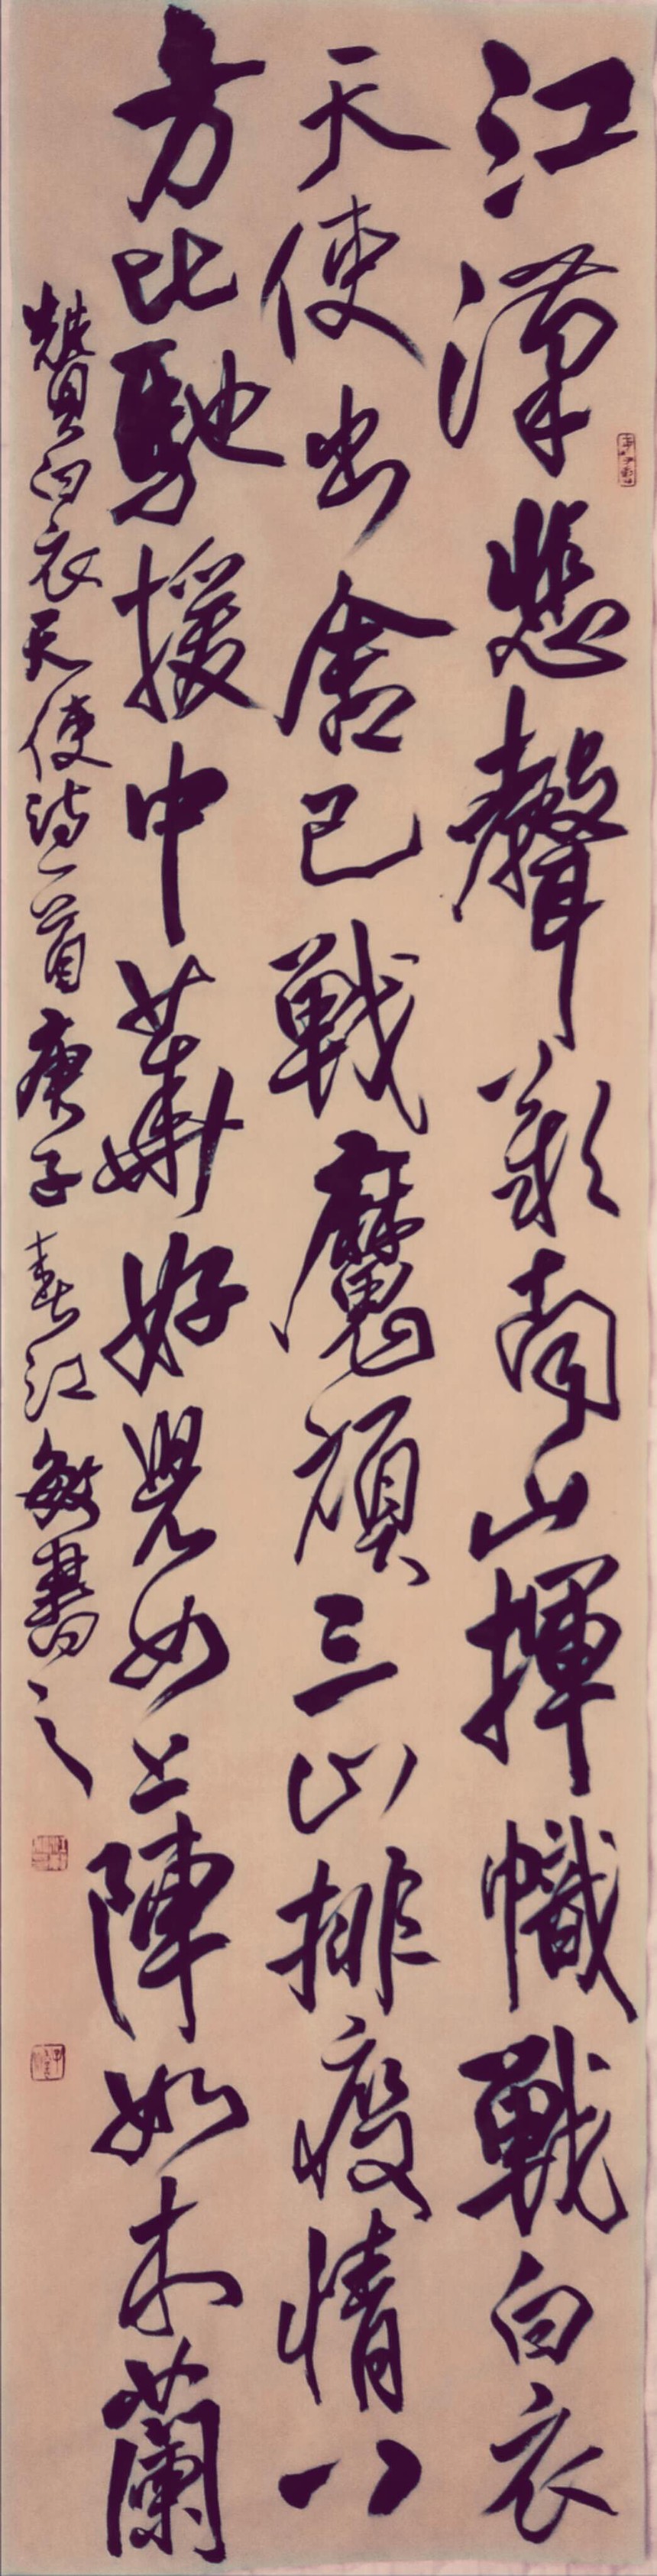 江漢悲聲歎南山揮幟戰白衣
天使出舍己戰魔頑三山排疫情八
方比馳援中華好兒女上陣如木蘭
贊白衣天使詩一首庚子春江敏書之